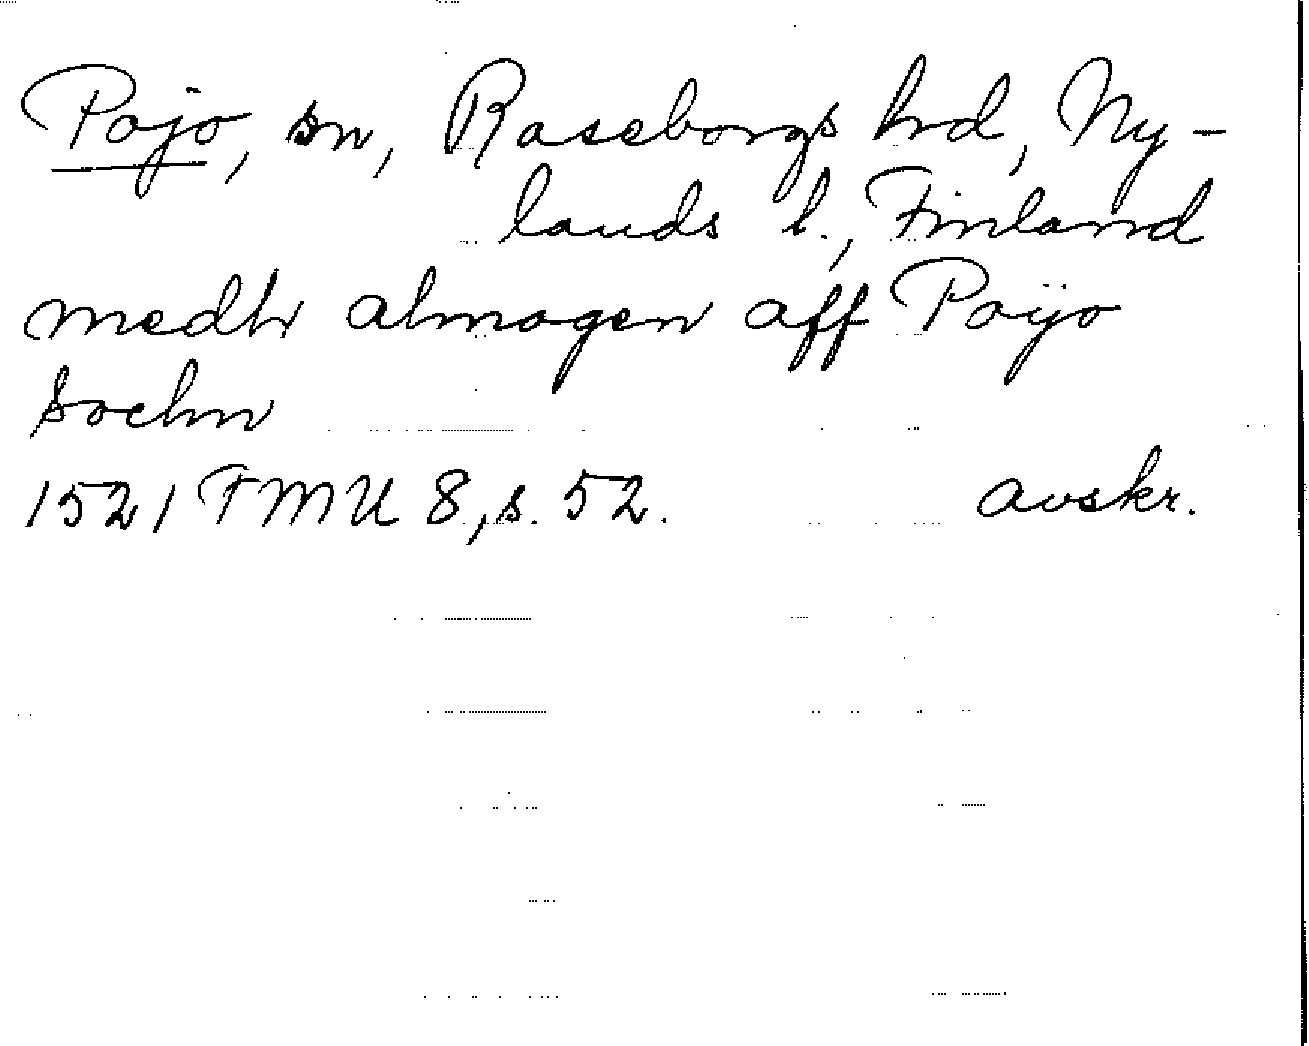 Pojo, sn, Raseborgs hrd, Ny-
lands l., Finland
medh almogen aff Poijo
Sochn
1521 FMU 8, s. 52. avskr.